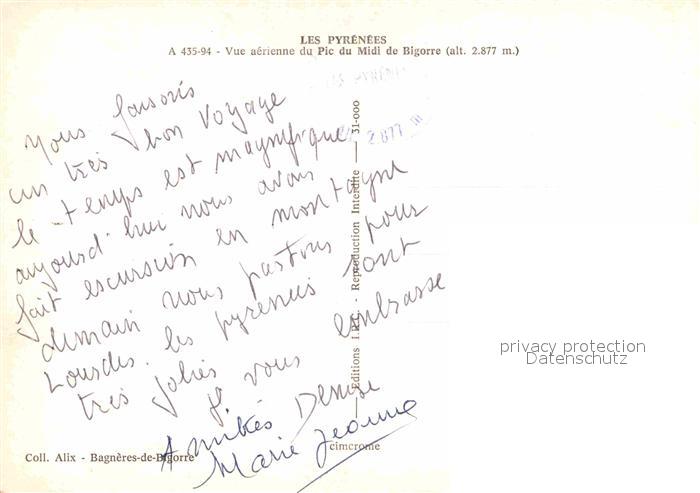 LES PYRÉNÉES
A 435-94 - Vue aérienne du Pic du Midi de Bigorre (alt. 2.877 m.)
Nous faisons
un très bon voyage
le temps est magnifique
aujourd'hui nous avons
fait escursion en montagne
demain nous partons pour
Lourdes. les pyrenees sont
très jolies
Je vous embrasse
Denise
Amitiés
Marie Jeanne
2.877 m
Editions I.P. - Reproduction Interdite — 31-000
cimcrome
Coll. Alix - Bagnères-de-Bigorre
privacy protection
Datenschutz